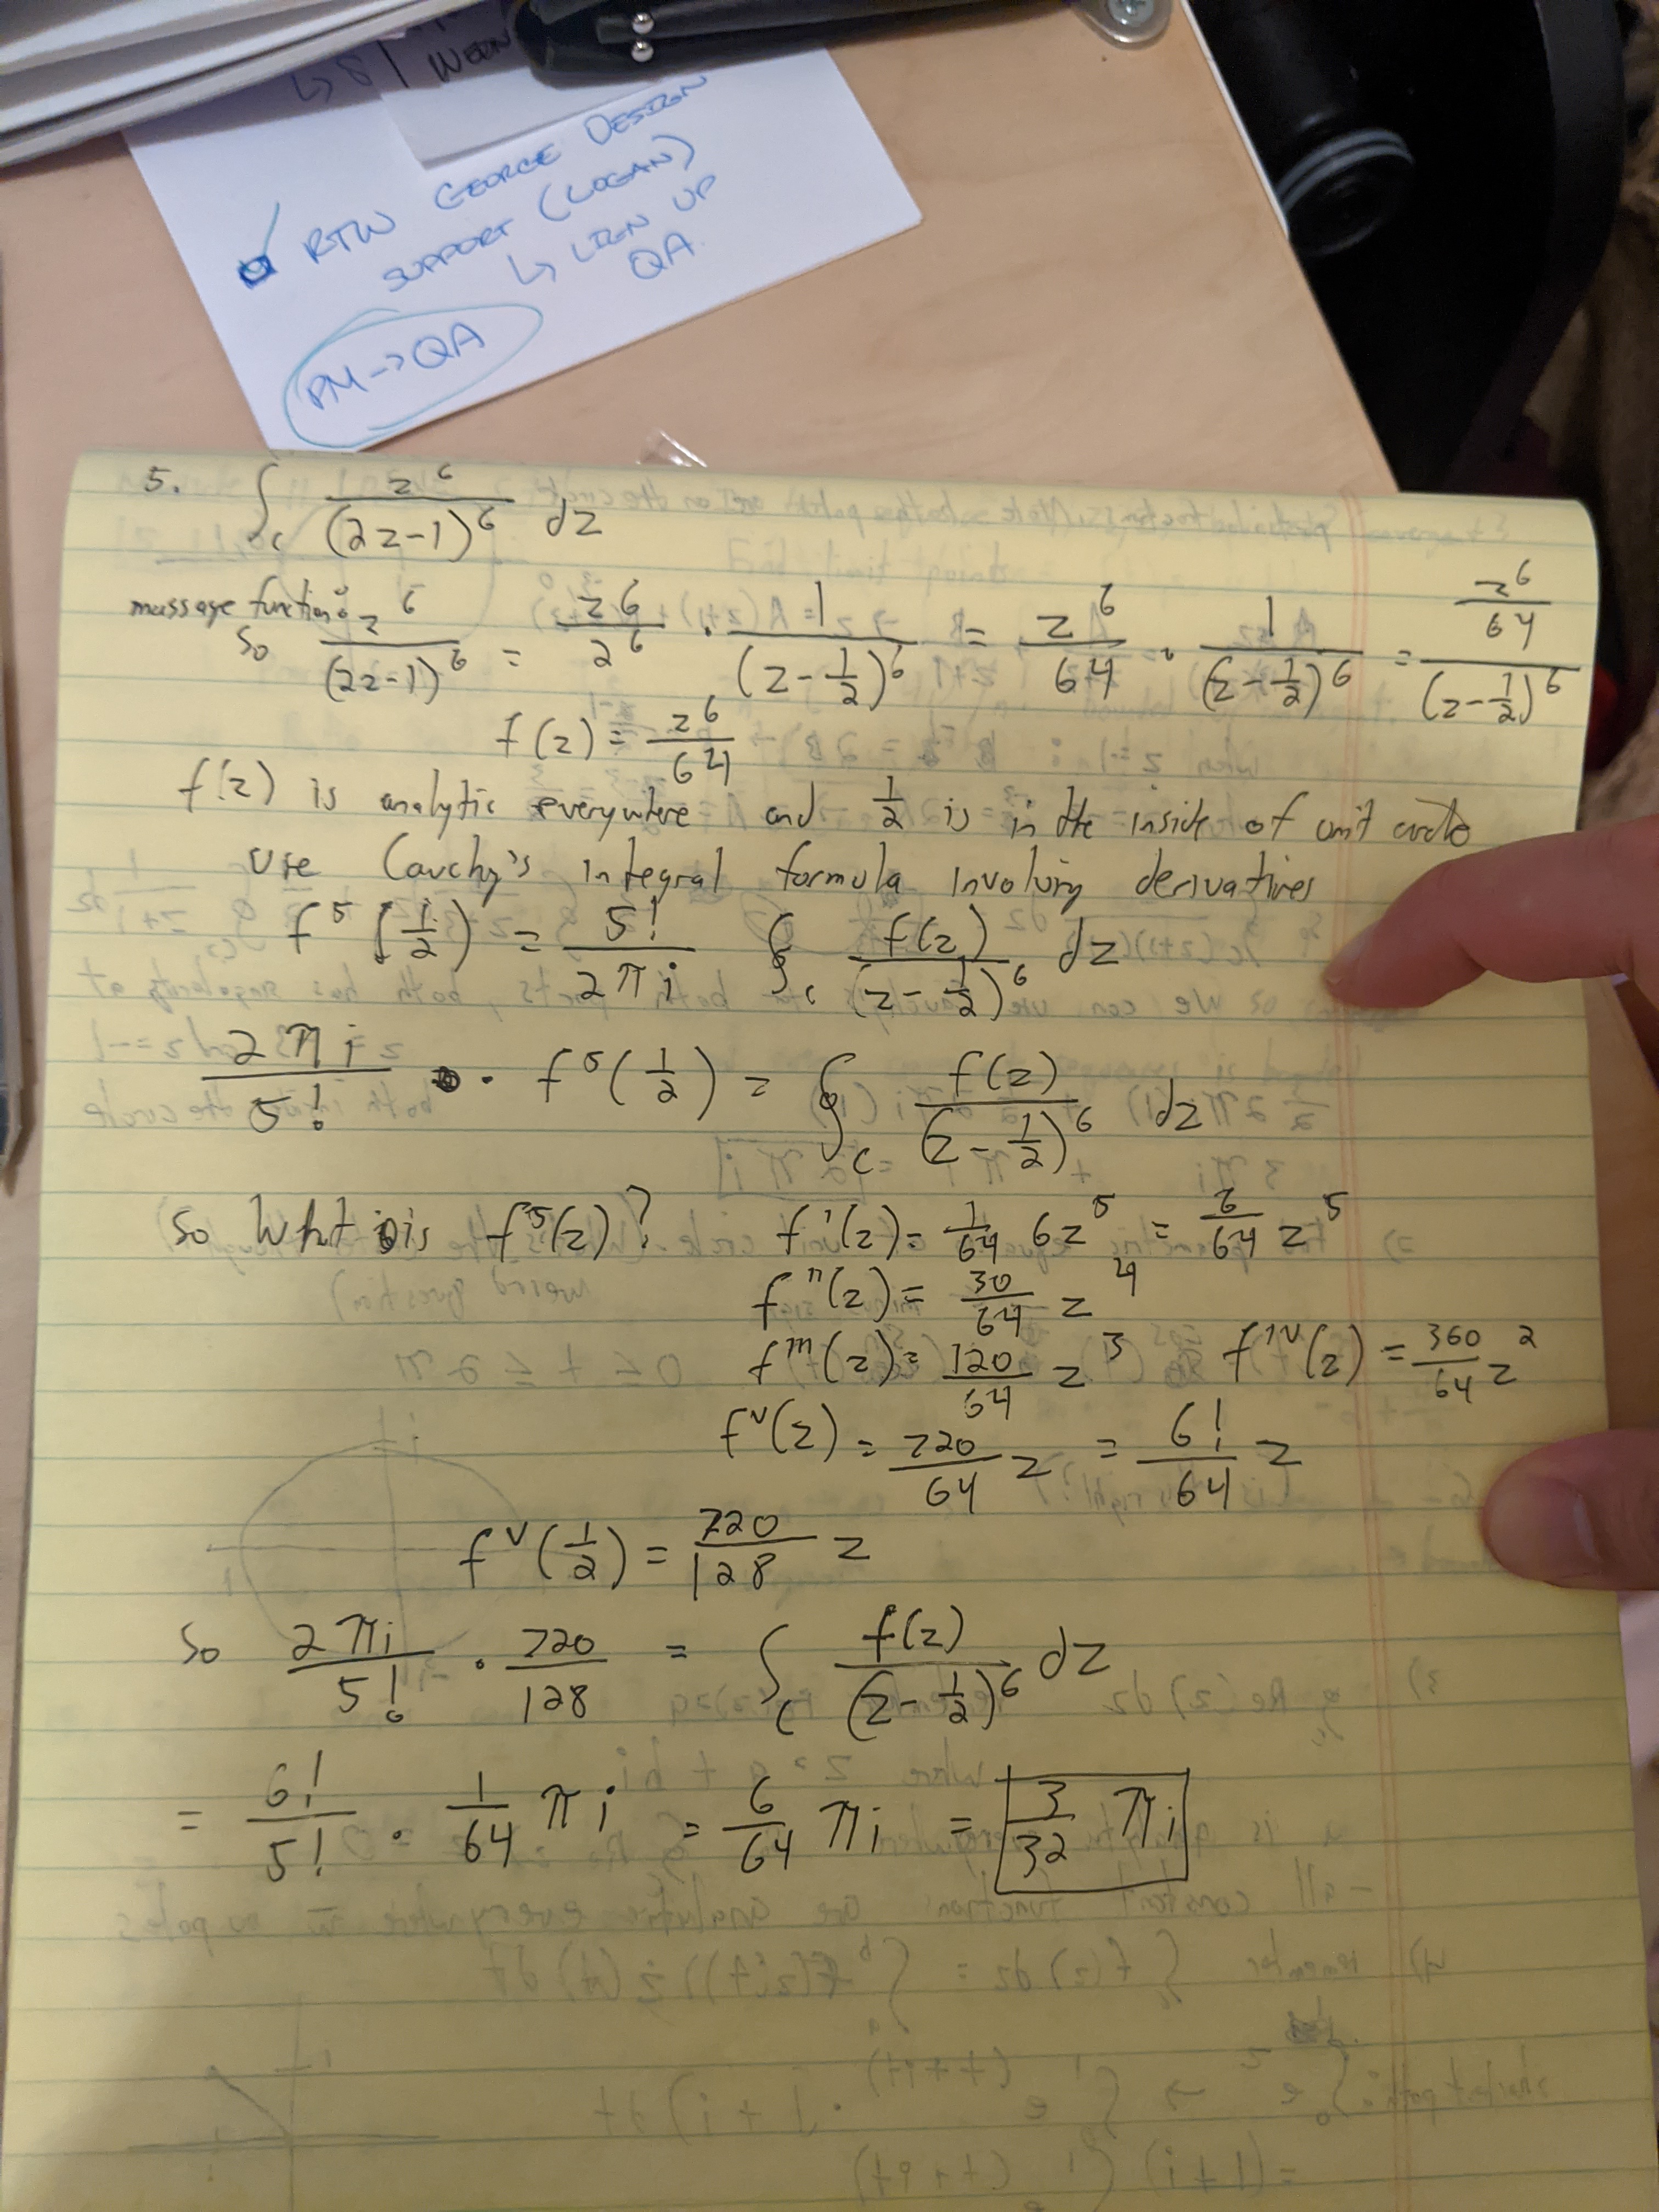 WEEN
☑ RTW GEORGE DESIGN
SUPPORT (LOGAN)
↳ LIGN UP
QA.
PM -> QA
5. ∫_C z^6/(2z-1)^6 dz
massage function:
So z^6/(2z-1)^6 = z^6/2^6 · 1/(z-1/2)^6 = z^6/64 · 1/(z-1/2)^6 = (z^6/64)/(z-1/2)^6
f(z) = z^6/64
f(z) is analytic everywhere and 1/2 is in the inside of unit circle
Use Cauchy's integral formula involving derivatives
f^5(1/2) = 5!/(2πi) ∮_C f(z)/(z-1/2)^6 dz
2πi/5! · f^5(1/2) = ∮_C f(z)/(z-1/2)^6 dz
So What is f^5(z)? f'(z) = 1/64 6z^5 = 6/64 z^5
f''(z) = 30/64 z^4
f'''(z) = 120/64 z^3 f^IV(z) = 360/64 z^2
f^V(z) = 720/64 z = 6!/64 z
f^V(1/2) = 720/128 z
So 2πi/5! · 720/128 = ∫_C f(z)/(z-1/2)^6 dz
= 6!/5! · 1/64 πi = 6/64 πi = 3/32 πi